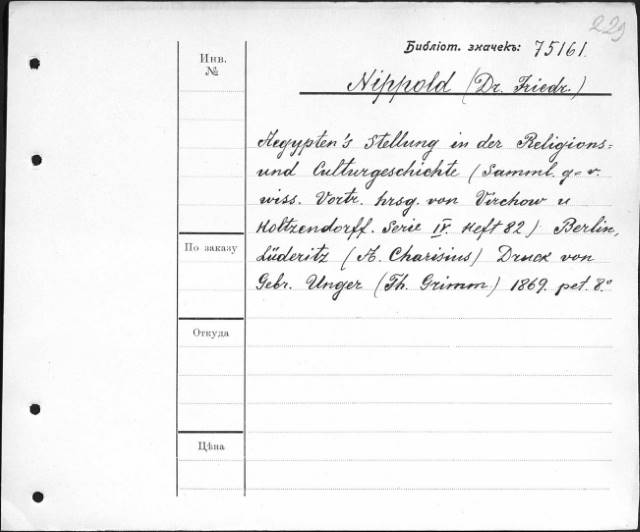 229
Библіот. значекъ: 75161.
Инв.
№
Nippold (Dr. Friedr.)
Aegypten's Stellung in der Religions=
und Culturgeschichte (Samml. g-v.
wiss. Vortr. hrsg. von Virchow u
Holtzendorff. Serie IV. Heft 82) Berlin,
По заказу
Lüderitz (A. Charisius) Druck von
Gebr. Unger (Th. Grimm) 1869. pet. 8.º
Откуда
Цѣна